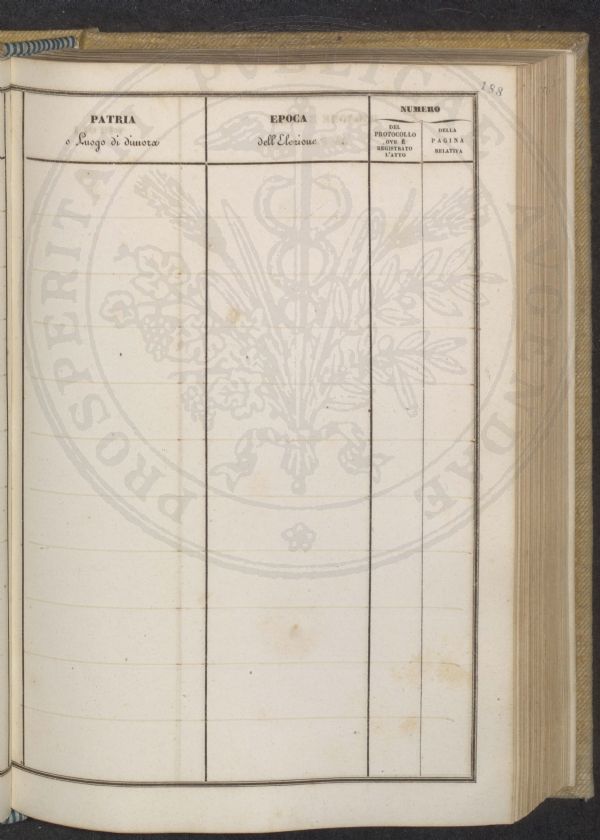 188
PATRIA
o Luogo di dimora
EPOCA
dell'Elezione
NUMERO
DEL
PROTOCOLLO
OVE È
REGISTRATO
L'ATTO
DELLA
PAGINA
RELATIVA
PROSPERITATI PUBLICAE AUGENDAE